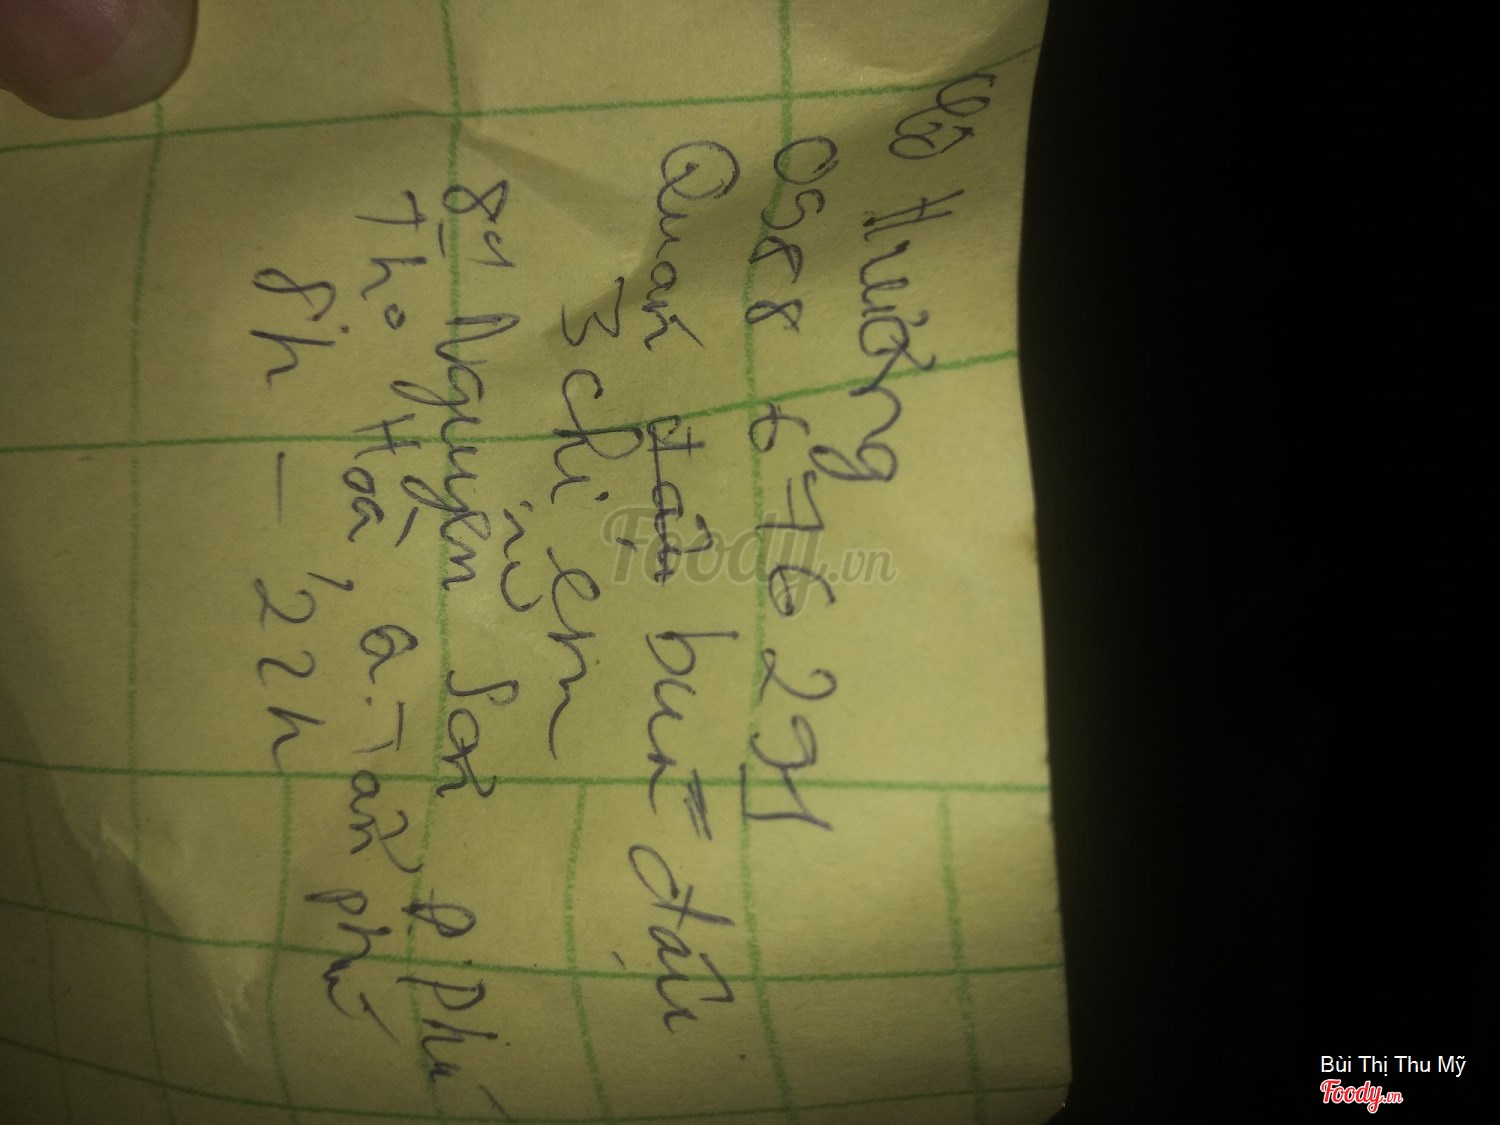 Cô Hường
0588 676291
Quán đậu bún = đậu
3 chị em
81 Nguyễn Sơn, P. Phú
Thọ Hoà, Q. Tân Phú
8h - 22h
Foody.vn
Bùi Thị Thu Mỹ
Foody.vn